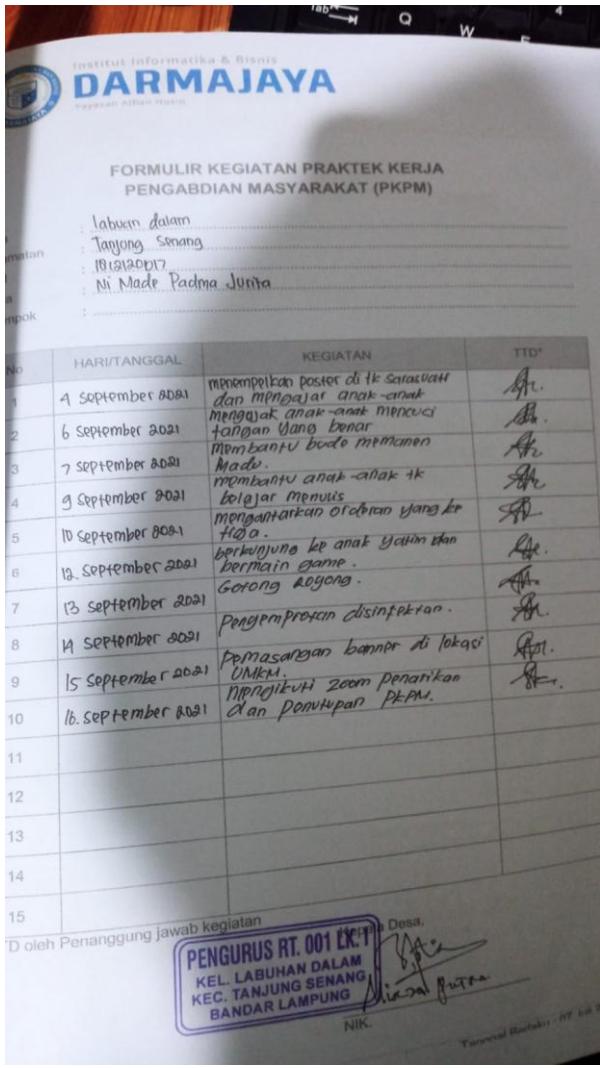 Institut Informatika & Bisnis
DARMAJAYA
Yayasan Alfian Husin
FORMULIR KEGIATAN PRAKTEK KERJA
PENGABDIAN MASYARAKAT (PKPM)
: labuan dalam
: Tanjong Senang
: 1812120017
: Ni Made Padma Jurita
:
No HARI/TANGGAL KEGIATAN TTD*
1 4 September 2021 menempelkan poster di tk Sarasvati
dan mengajar anak-anak
2 6 September 2021 mengajak anak-anak mencuci
tangan yang benar
3 7 September 2021 Membantu bude memanen
Madu.
4 9 September 2021 membantu anak-anak tk
belajar menulis
5 10 September 2021 mengantarkan orderan yang ke
6 12. September 2021 berkunjung ke anak yatim dan
bermain game.
7 13 September 2021 Gotong Royong.
8 14 September 2021 Penyemprotan disinfektan.
9 15 September 2021 Pemasangan banner di lokasi
UMKM.
10 16. September 2021 mengikuti zoom Penarikan
dan Penutupan PKPM.
11
12
13
14
15
D oleh Penanggung jawab kegiatan
Kepala Desa,
PENGURUS RT. 001 LK.1
KEL. LABUHAN DALAM
KEC. TANJUNG SENANG
BANDAR LAMPUNG
NIK.